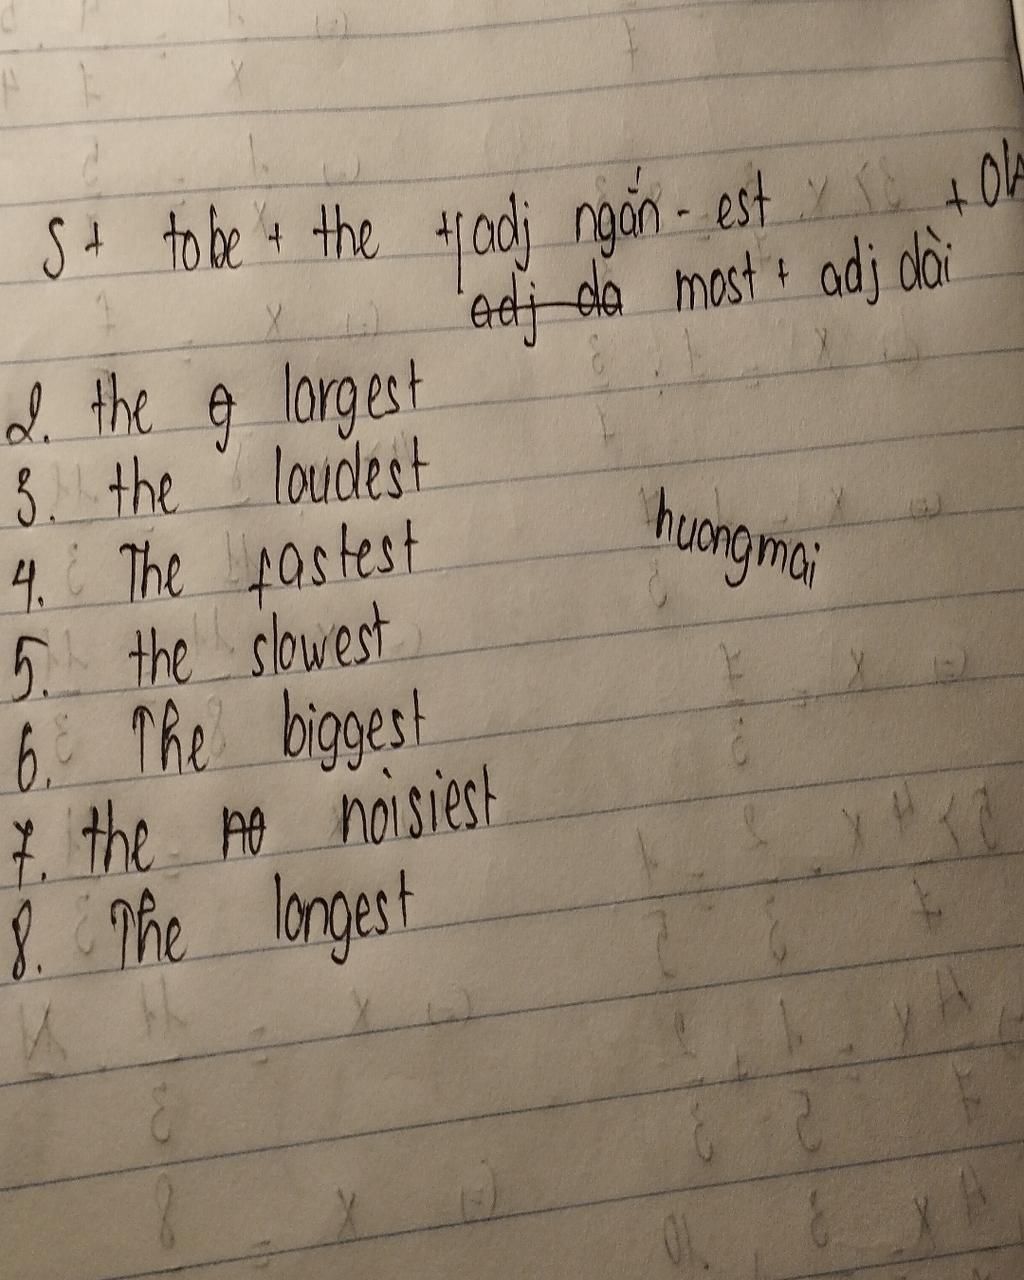 S + tobe + the + adj ngắn - est + Ok
adj da most + adj dài
2. the g largest
3. the loudest
4. The fastest
huongmai
5. the slowest
6. The biggest
7. the no noisiest
8. The longest